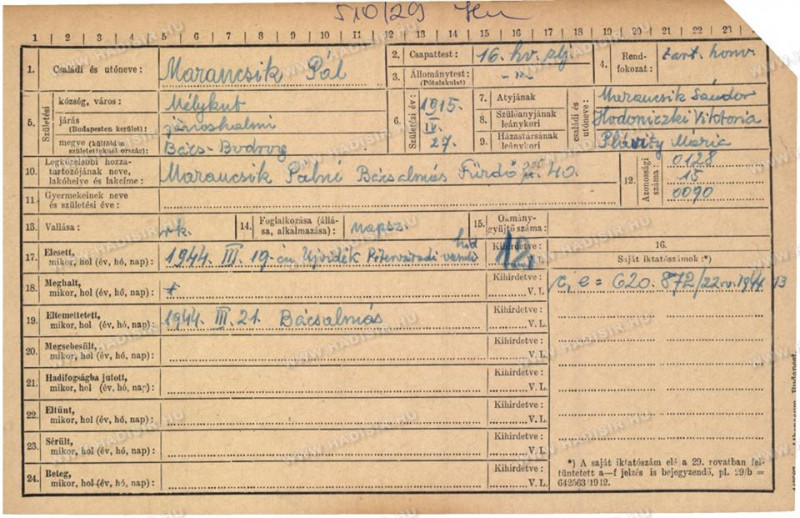 510/29
1 2 3 4 5 6 7 8 9 10 11 12 13 14 15 16 17 18 19 20 21 22 23
1. Családi és utóneve: Marancsik Pál
2. Csapattest: 16. hv. zlj.
3. Állománytest: (Pótalakulat) -"-
4. Rendfokozat: tart. honv.
5. Születési
község, város: Mélykut
járás (Budapesten kerület): Jánoshalmi
megye (külföldi születésűeknél ország): Bács-Bodrog
6. Születési év: 1915. IV. 27.
7. Atyjának
8. Szülőanyjának leánykori
9. Házastársának leánykori
családi és utóneve:
Marancsik Sándor
Hodoniczki Viktoria
Plávity Mária
10. Legközelebbi hozzátartozójának neve, lakóhelye és lakcíme: Marancsik Pálné Bácsalmás Fürdő u. 40.
11. Gyermekeinek neve és születési éve:
12. Azonossági száma: 0128
15
0090
13. Vallása: rk.
14. Foglalkozása (állása, alkalmazása): napsz.
15. Okmánygyüjtő száma:
16. Saját iktatószámok:*)
17. Elesett, mikor, hol (év, hó, nap): 1944. III. 19-én Ujvidék Pétervárad híd Kihirdetve: V. L.
18. Meghalt, mikor, hol (év, hó, nap): Kihirdetve: V. L.
c, e = 620.872/22.v.1944. 13
19. Eltemettetett, mikor, hol (év, hó, nap): 1944. III. 21. Bácsalmás Kihirdetve: V. L.
20. Megsebesült, mikor, hol (év, hó, nap): Kihirdetve: V. L.
21. Hadifogságba jutott, mikor, hol (év, hó, nap): Kihirdetve: V. L.
22. Eltünt, mikor, hol (év, hó, nap): Kihirdetve: V. L.
23. Sérült, mikor, hol (év, hó, nap): Kihirdetve: V. L.
24. Beteg, mikor, hol (év, hó, nap): Kihirdetve: V. L.
*) A saját iktatószám elé a 29. rovatban feltüntetett a—f jelzés is bejegyzendő, pl. 29/b = 642563/1942.
WWW.HADISIR.HU